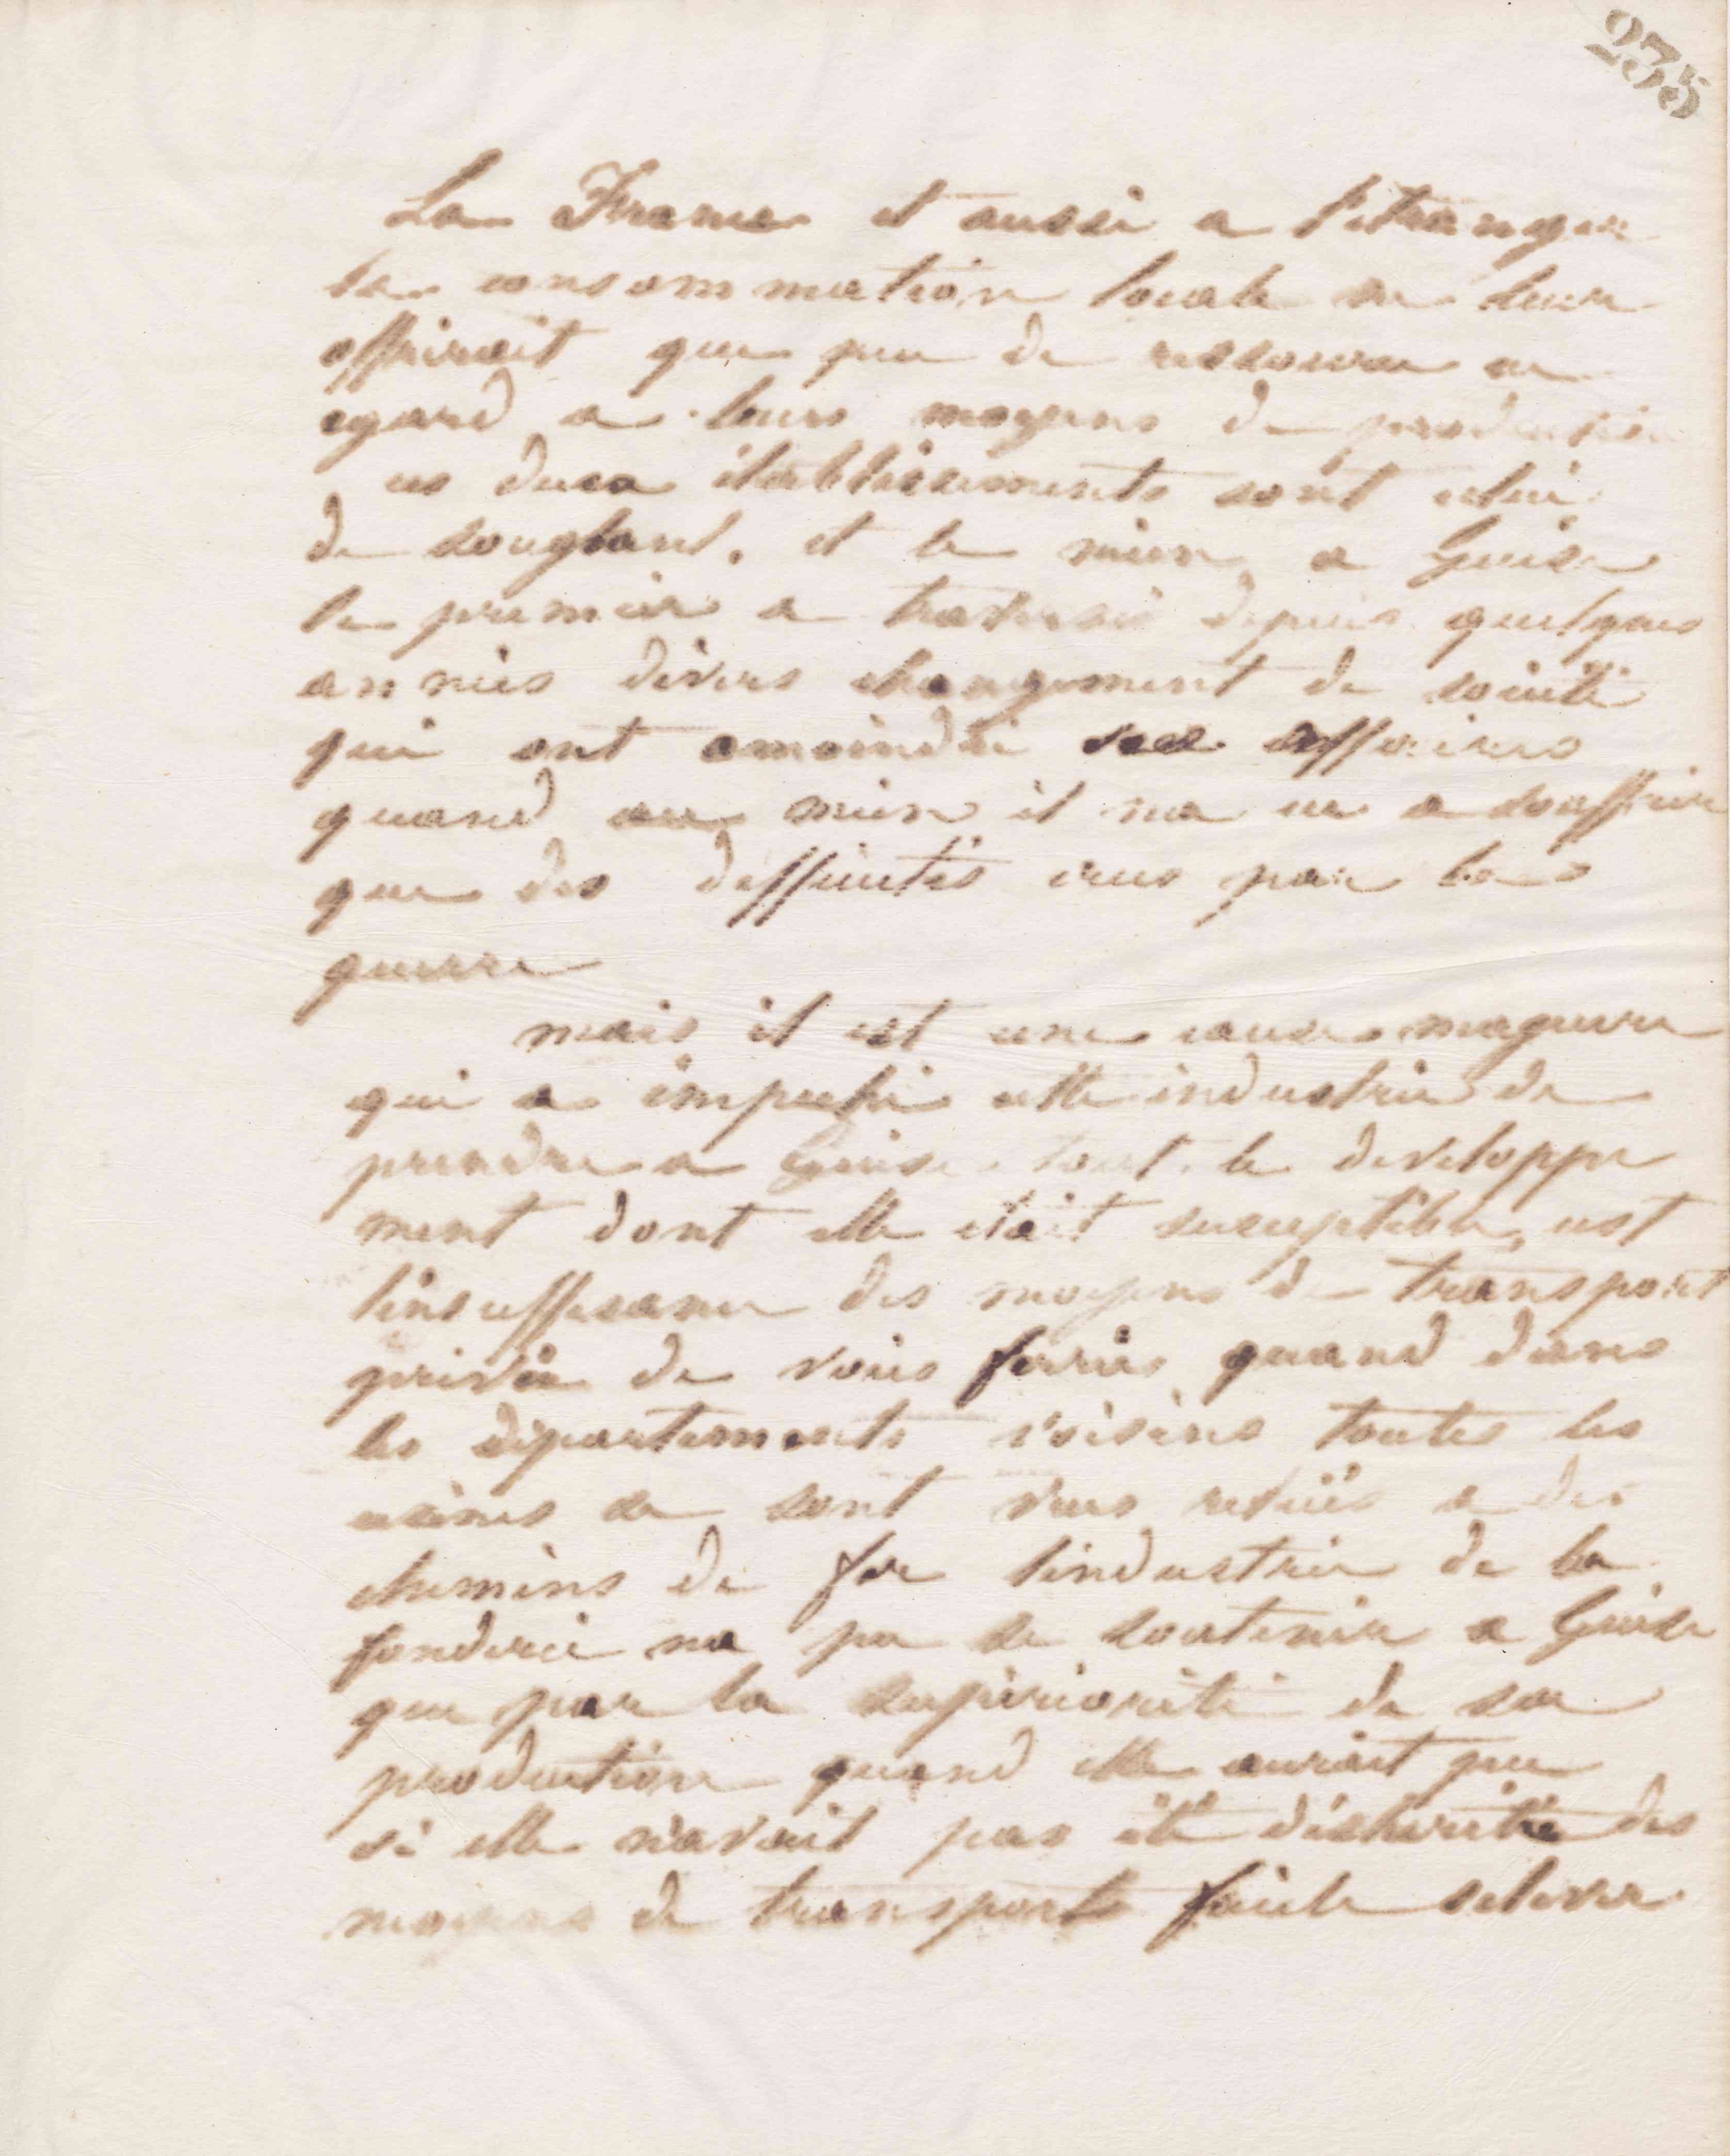 235
La France et aussi a l'etranger
la consommation locale ne leur
offrirait que peu de ressource eu
egard a leurs moyens de production
ces deux établissements sont celui
de sougland, et le mien a Guise
le premier a traversé depuis quelques
années divers changement de société
qui ont amoindri ses affaires
quand au mien il na eu a souffrir
que des difficultés crées par la
guerre
mais il est une cause mageure
qui a impeché cette industrie de
prendre a Guise tout le developpe
ment dont elle était susceptible, cest
l'insuffisance des moyens de transport
privée de voies ferrés quand dans
les départements voisins toutes les
usines se sont vues reliées a des
chemins de fer lindustrie de la
fonderie na pu se soutenir a Guise
que par la supériorité de sa
production quand elle aurait pu
si elle n'avait pas été déshéritée des
moyens de transports facile selever